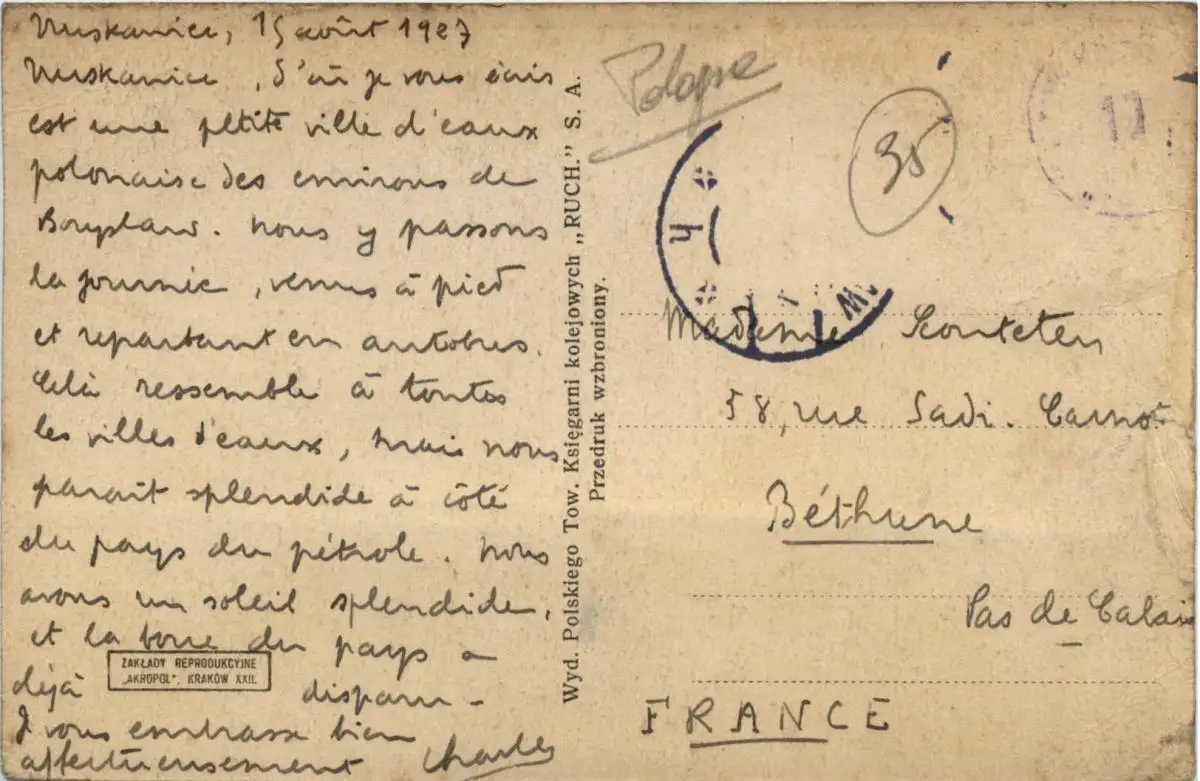 Truskawice, 15 août 1927
Truskawice, d'où je vous écris
est une petite ville d'eaux
polonaise des environs de
Boryslaw. Nous y passons
la journée, venus à pied
et repartant en autobus.
Celà ressemble à toutes
les villes d'eaux, mais nous
parait splendide à côté
du pays du pétrole. Nous
avons un soleil splendide,
et la boue du pays a
déjà disparu -
Je vous embrasse bien
affectueusement Charles
ZAKŁADY REPRODUKCYJNE
„AKROPOL”, KRAKÓW XXII.
Wyd. Polskiego Tow. Księgarni kolejowych „RUCH.” S. A.
Przedruk wzbroniony.
Pologne
35
17
h
Madame Scouteten
58, rue Sadi. Carnot
Béthune
Pas de Calais
FRANCE